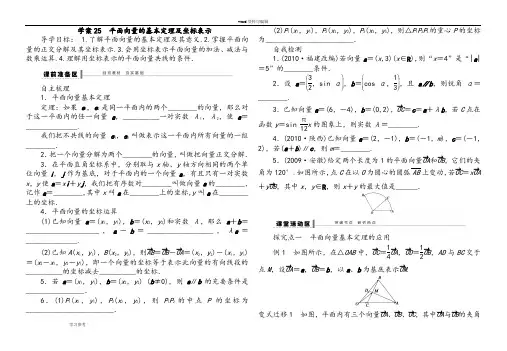 学案25　平面向量的基本定理及坐标表示
导学目标：1.了解平面向量的基本定理及其意义.2.掌握平面向量的正交分解及其坐标表示.3.会用坐标表示平面向量的加法、减法与数乘运算.4.理解用坐标表示的平面向量共线的条件.
课前准备区
自主梳理
1．平面向量基本定理
定理：如果e₁，e₂是同一平面内的两个________的向量，那么对于这一平面内的任一向量a，__________一对实数λ₁，λ₂，使a＝______________.
我们把不共线的向量e₁，e₂叫做表示这一平面内所有向量的一组________.
2．把一个向量分解为两个________的向量，叫做把向量正交分解．
3．在平面直角坐标系中，分别取与x轴、y轴方向相同的两个单位向量i，j作为基底，对于平面内的一个向量a，有且只有一对实数x，y使a＝xi＋yj，我们把有序数对________叫做向量a的________，记作a＝________，其中x叫a在________上的坐标，y叫a在________上的坐标．
4．平面向量的坐标运算
(1)已知向量a＝(x₁，y₁)，b＝(x₂，y₂)和实数λ，那么a＋b＝________________，a－b＝________________，λa＝________________.
(2)已知A(x₁，y₁)，B(x₂，y₂)，则AB＝OB－OA＝(x₂，y₂)－(x₁，y₁)＝(x₂－x₁，y₂－y₁)，即一个向量的坐标等于表示此向量的有向线段的________的坐标减去________的坐标．
5．若a＝(x₁，y₁)，b＝(x₂，y₂) (b≠0)，则a∥b的充要条件是________________.
6．(1)P₁(x₁，y₁)，P₂(x₂，y₂)，则P₁P₂的中点P的坐标为________________.
(2)P₁(x₁，y₁)，P₂(x₂，y₂)，P₃(x₃，y₃)，则△P₁P₂P₃的重心P的坐标为________________.
自我检测
1．(2010·福建改编)若向量a＝(x,3)(x∈R)，则“x＝4”是“|a|＝5”的________条件．
2．设a＝(3/2，sin α)，b＝(cos α，1/3)，且a∥b，则锐角α＝________.
3．已知向量a＝(6，－4)，b＝(0,2)，OC＝c＝a＋λb，若C点在函数y＝sin π/12 x的图象上，则实数λ＝________.
4．(2010·陕西)已知向量a＝(2，－1)，b＝(－1，m)，c＝(－1,2)，若(a＋b)∥c，则m＝________.
5．(2009·安徽)给定两个长度为1的平面向量OA和OB，它们的夹角为120°.如图所示，点C在以O为圆心的圆弧AB上变动，若OC＝xOA＋yOB，其中x，y∈R，则x＋y的最大值是______.
课堂活动区
探究点一　平面向量基本定理的应用
例1　如图所示，在△OAB中，OC＝1/4 OA，OD＝1/2 OB，AD与BC交于点M，设OA＝a，OB＝b，以a、b为基底表示OM.
变式迁移1　如图，平面内有三个向量OA、OB、OC，其中OA与OB的夹角